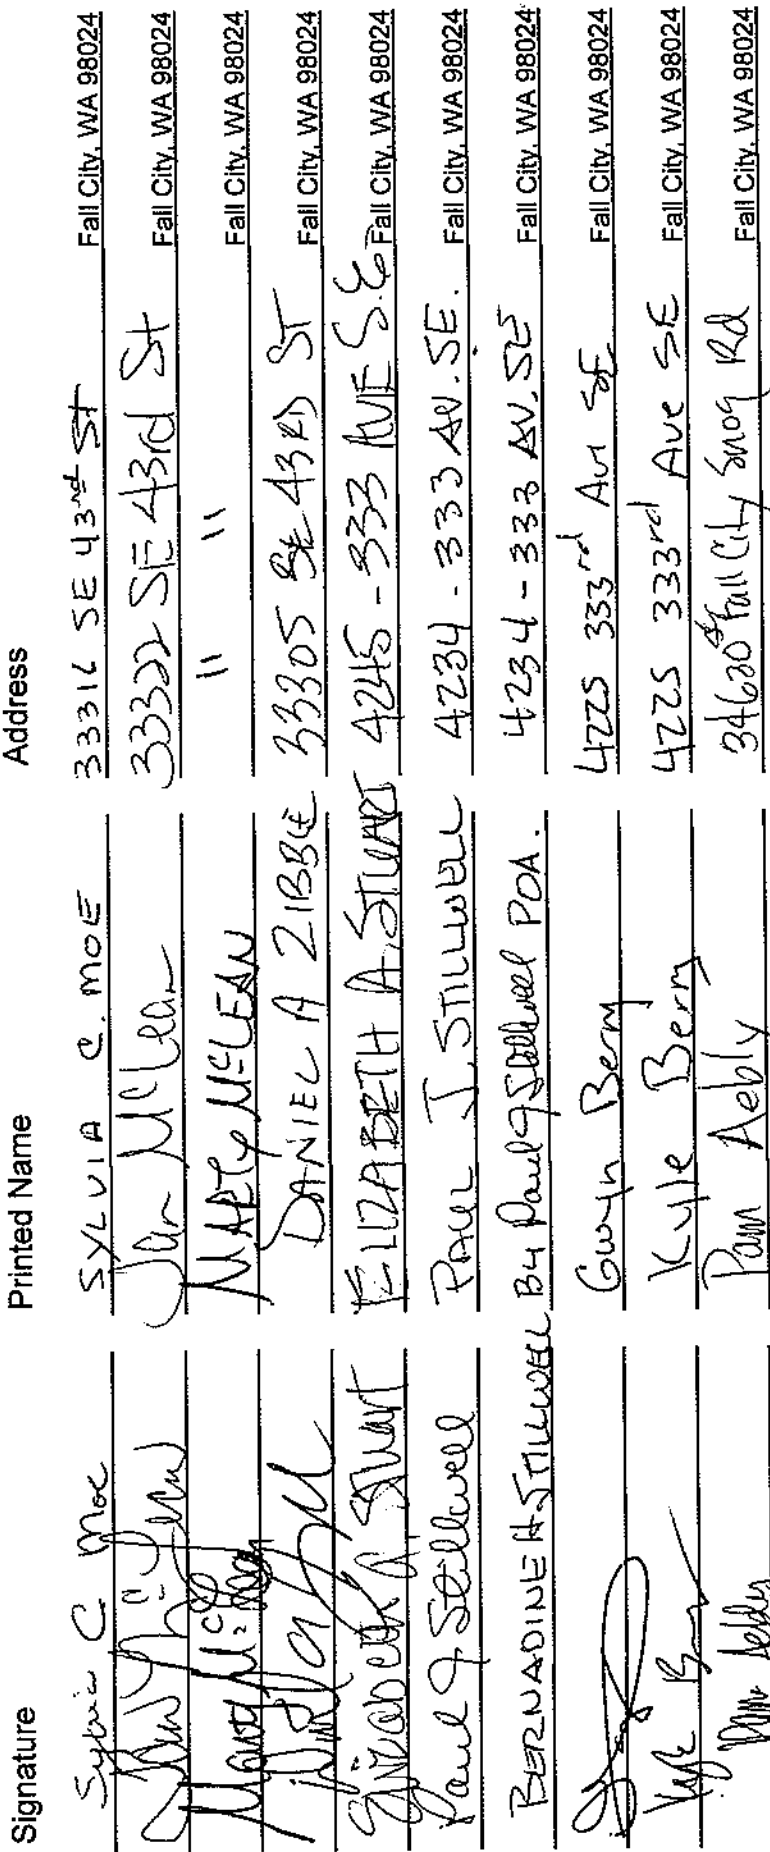 Signature Printed Name Address
Sylvia C Moe SYLVIA C. MOE 33316 SE 43rd St Fall City, WA 98024
Jan McLean Jan McLean 33322 SE 43rd St Fall City, WA 98024
Marty McLean MARTY McLEAN " " Fall City, WA 98024
DANIEL A ZIBBLE 33305 SE 43RD ST Fall City, WA 98024
Elizabeth A. Stuart ELIZABETH A. STUART 4245 - 333 AVE S.E Fall City, WA 98024
Paul J Stillwell PAUL J. STILLWELL 4234 - 333 AV. SE. Fall City, WA 98024
BERNADINE H. STILLWELL By Paul J Stillwell POA. 4234 - 333 AV. SE Fall City, WA 98024
Gwyn Berry 4225 333rd Ave SE Fall City, WA 98024
Kyle Berry Kyle Berry 4225 333rd Ave SE Fall City, WA 98024
Pam Aebly Pam Aebly 34620 Fall City Snoq Rd Fall City, WA 98024